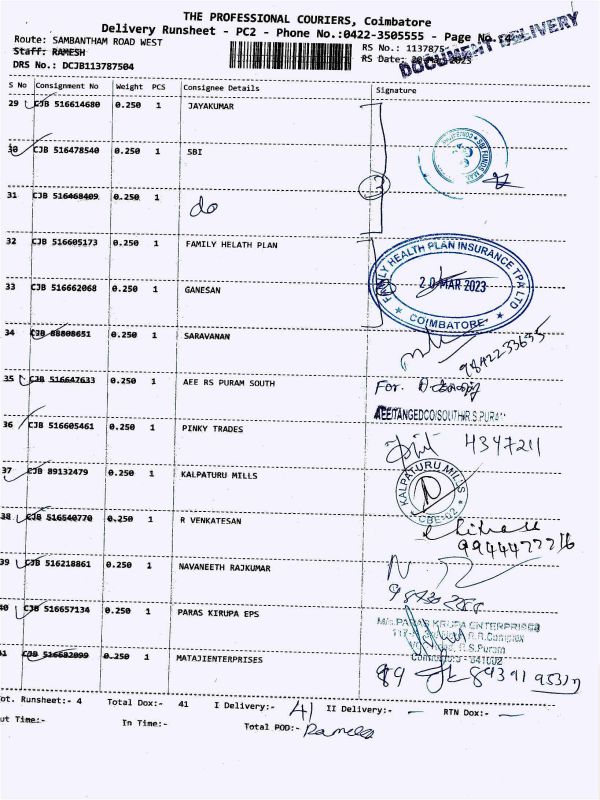 THE PROFESSIONAL COURIERS, Coimbatore
Delivery Runsheet - PC2 - Phone No.:0422-3505555 - Page No.
DOCUMENT DELIVERY
Route: SAMBANTHAM ROAD WEST
RS No.: 1137875
Staff: RAMESH
RS Date: 2023
DRS No.: DCJB113787504
S No Consignment No Weight PCS Consignee Details Signature
29 CJB 516614680 0.250 1 JAYAKUMAR
30 CJB 516478540 0.250 1 SBI
SBI FUNDS
31 CJB 516468409 0.250 1 do
3
32 CJB 516605173 0.250 1 FAMILY HELATH PLAN
FAMILY HEALTH PLAN INSURANCE TPA LTD
20 MAR 2023
COIMBATORE
33 CJB 516662068 0.250 1 GANESAN
34 CJB 88808651 0.250 1 SARAVANAN
9842233655
35 CJB 516647633 0.250 1 AEE RS PURAM SOUTH
For.
AEE/TANGEDCO/SOUTH/R.S.PURA
36 CJB 516605461 0.250 1 PINKY TRADES
4347211
37 CJB 89132479 0.250 1 KALPATURU MILLS
KALPATURU MILLS
CBE-02
38 CJB 516540770 0.250 1 R VENKATESAN
39 CJB 516218861 0.250 1 NAVANEETH RAJKUMAR
40 CJB 516657134 0.250 1 PARAS KIRUPA EPS
M/s.PARAS KRUPA ENTERPRISES
R.R.Complex
R.S.Puram
641002
41 CJB 516682099 0.250 1 MATAJIENTERPRISES
ot. Runsheet:- 4 Total Dox:- 41 I Delivery:- 41 II Delivery:- — RTN Dox:- —
ut Time:- In Time:- Total POD:-